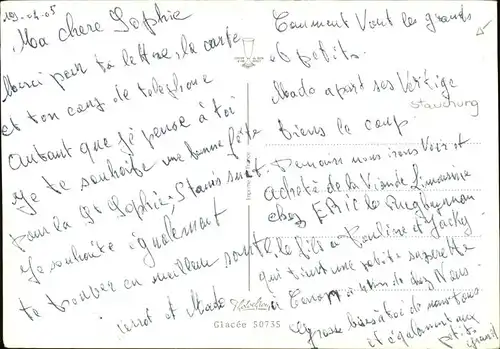 19-04-05
Ma chere Sophie
Merci pour ta lettre, la carte
et ton coup de telephone
autant que je pense à toi
Je te souhaite une bonne fête
pour la Ste Sophie; Stanis
Je souhaite également
te trouver en meilleur santé
et Mado
Comment vont les grands
et petits.
Mado apart ses Vertige
tiens le coup.
Stauchung
Demain nous irons Voir et
acheté de la Viande Limousine
chez ERIC le
le fils a Pauline et Jacky
qui tient une petite
a de chez Nous.
Grosse de nous tous
et également aux
petits
grand
Glacée 50735